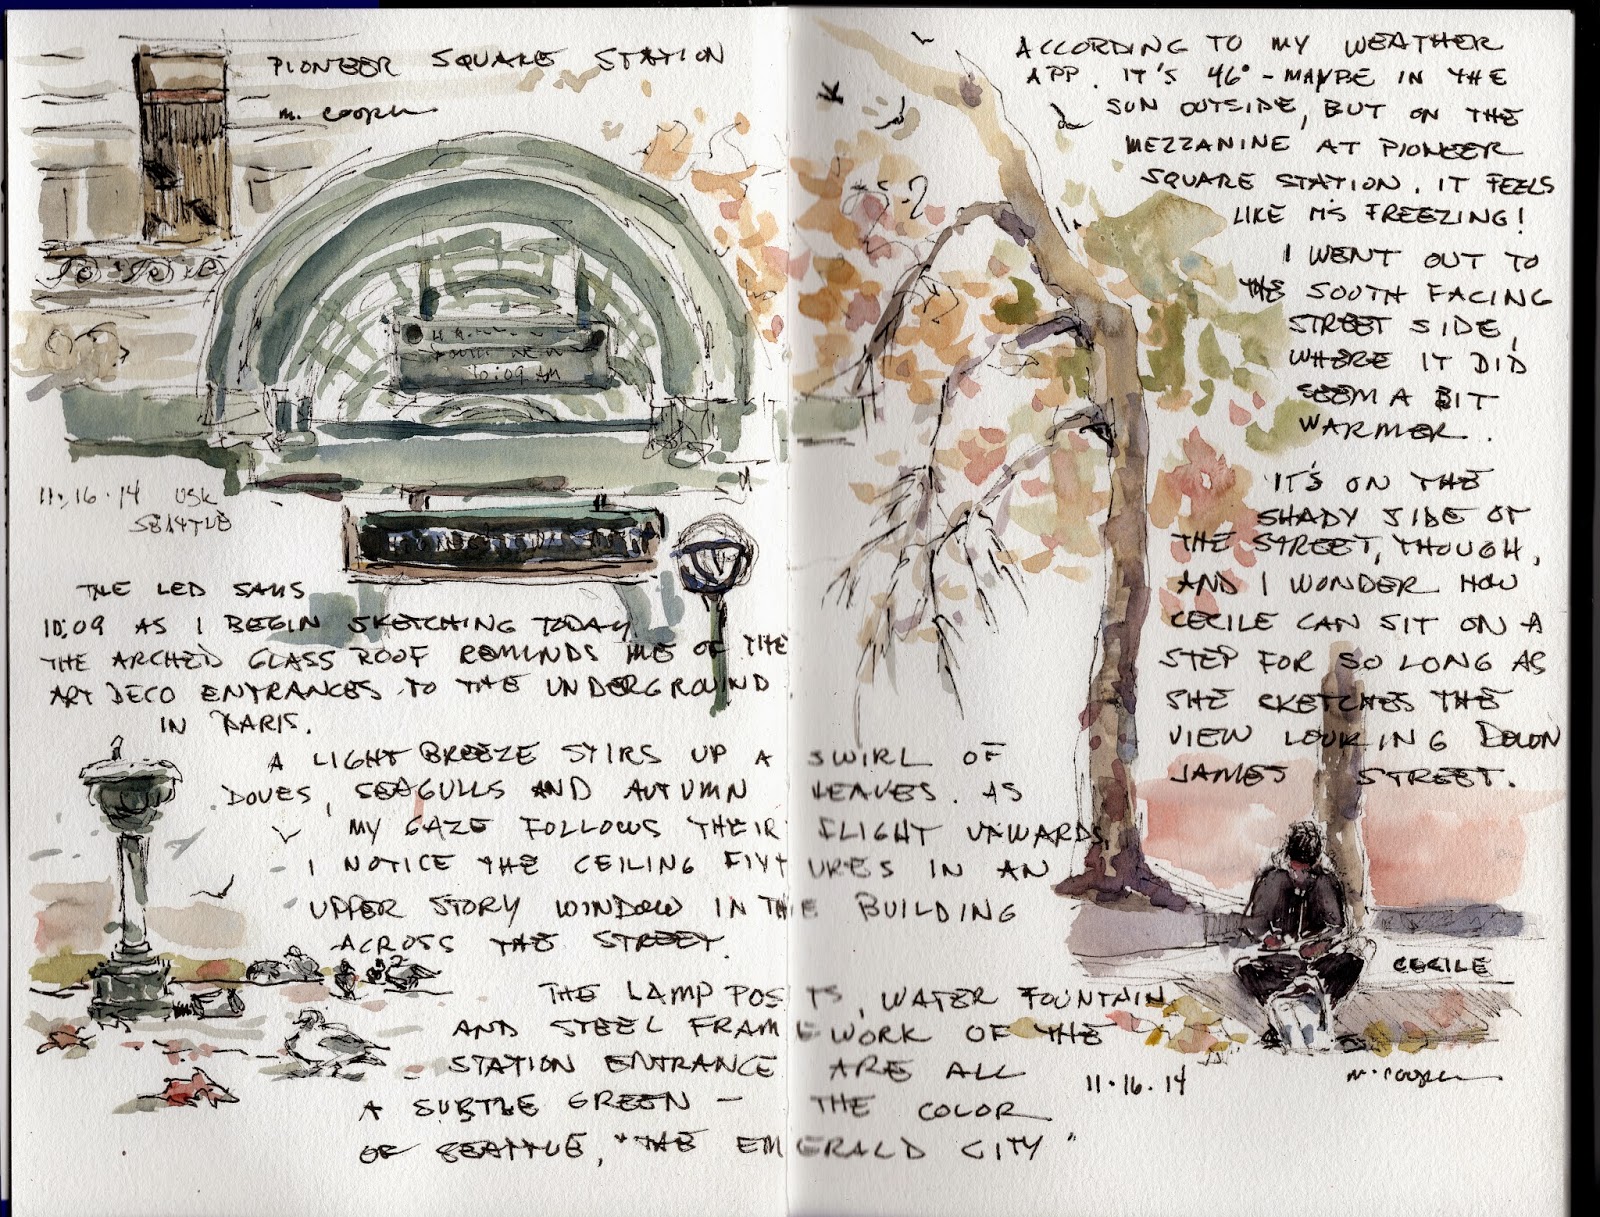 PIONEER SQUARE STATION
M. COOPER
10:09 AM
11.16.14 USK
SEATTLE
THE LED SAYS
10:09 AS I BEGIN SKETCHING TODAY
THE ARCHED GLASS ROOF REMINDS ME OF THE
ART DECO ENTRANCES TO THE UNDERGROUND
IN PARIS.
A LIGHT BREEZE STIRS UP A SWIRL OF
DOVES, SEAGULLS AND AUTUMN LEAVES. AS
MY GAZE FOLLOWS THEIR FLIGHT UPWARDS,
I NOTICE THE CEILING FIXTURES IN AN
UPPER STORY WINDOW IN THE BUILDING
ACROSS THE STREET.
THE LAMP POSTS, WATER FOUNTAIN
AND STEEL FRAMEWORK OF THE
STATION ENTRANCE ARE ALL
A SUBTLE GREEN – THE COLOR
OF SEATTLE, "THE EMERALD CITY"
ACCORDING TO MY WEATHER
APP. IT'S 46° – MAYBE IN THE
SUN OUTSIDE, BUT ON THE
MEZZANINE AT PIONEER
SQUARE STATION. IT FEELS
LIKE IT'S FREEZING!
I WENT OUT TO
THE SOUTH FACING
STREET SIDE,
WHERE IT DID
SEEM A BIT
WARMER.
IT'S ON THE
SHADY SIDE OF
THE STREET, THOUGH,
AND I WONDER HOW
CECILE CAN SIT ON A
STEP FOR SO LONG AS
SHE SKETCHES THE
VIEW LOOKING DOWN
JAMES STREET.
CECILE
11.16.14
M. COOPER